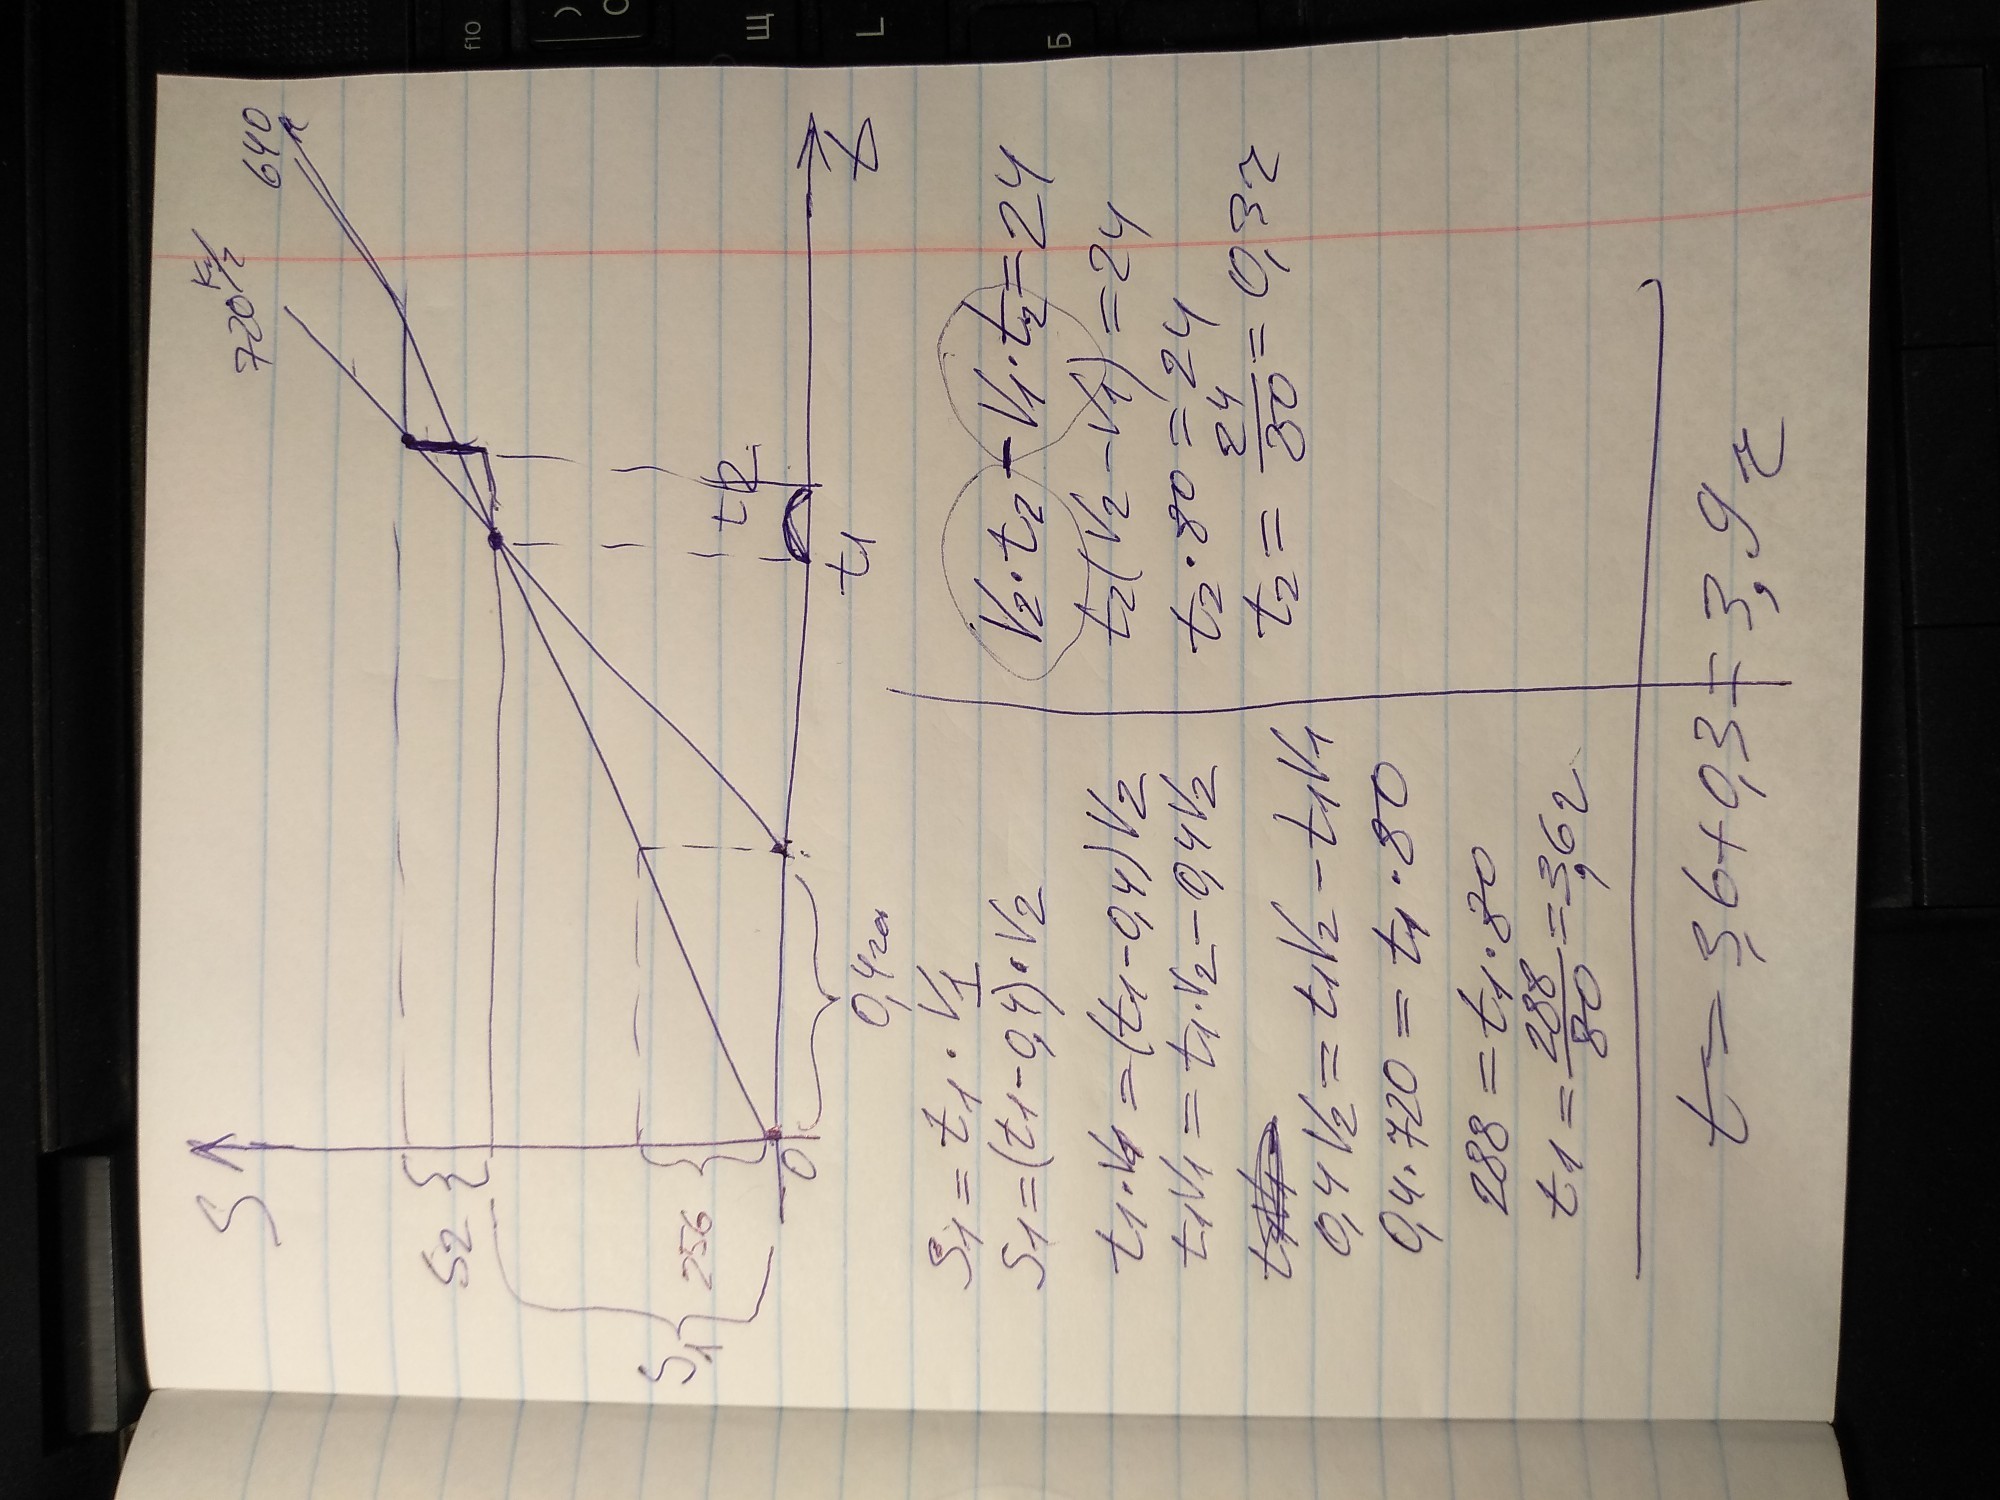 S
720 км/г
640
S2
S1
256
0
0,4 год
t1
t2
t
S1 = t1 · V1
S1 = (t1 - 0,4) · V2
t1 · V1 = (t1 - 0,4) V2
t1V1 = t1 · V2 - 0,4V2
0,4V2 = t1V2 - t1V1
0,4 · 720 = t1 · 80
288 = t1 · 80
t1 = 288/80 = 3,6 г
V2 · t2 - V1 · t2 = 24
t2(V2 - V1) = 24
t2 · 80 = 24
t2 = 24/80 = 0,3 г
t = 3,6 + 0,3 = 3,9 г
f10
Щ
L
Б